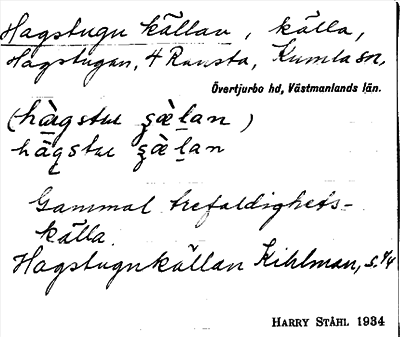 Hagstugu källan, källa,
Hagstugan, 4 Ransta, Kumla sn,
Övertjurbo hd, Västmanlands län.
(hàgstu ʂæ̀lan)
hàgstu ʂæ̀lan
Gammal trefaldighets-
källa.
Hagstugukällan Kihlman, s. 4/4
HARRY STÅHL 1934